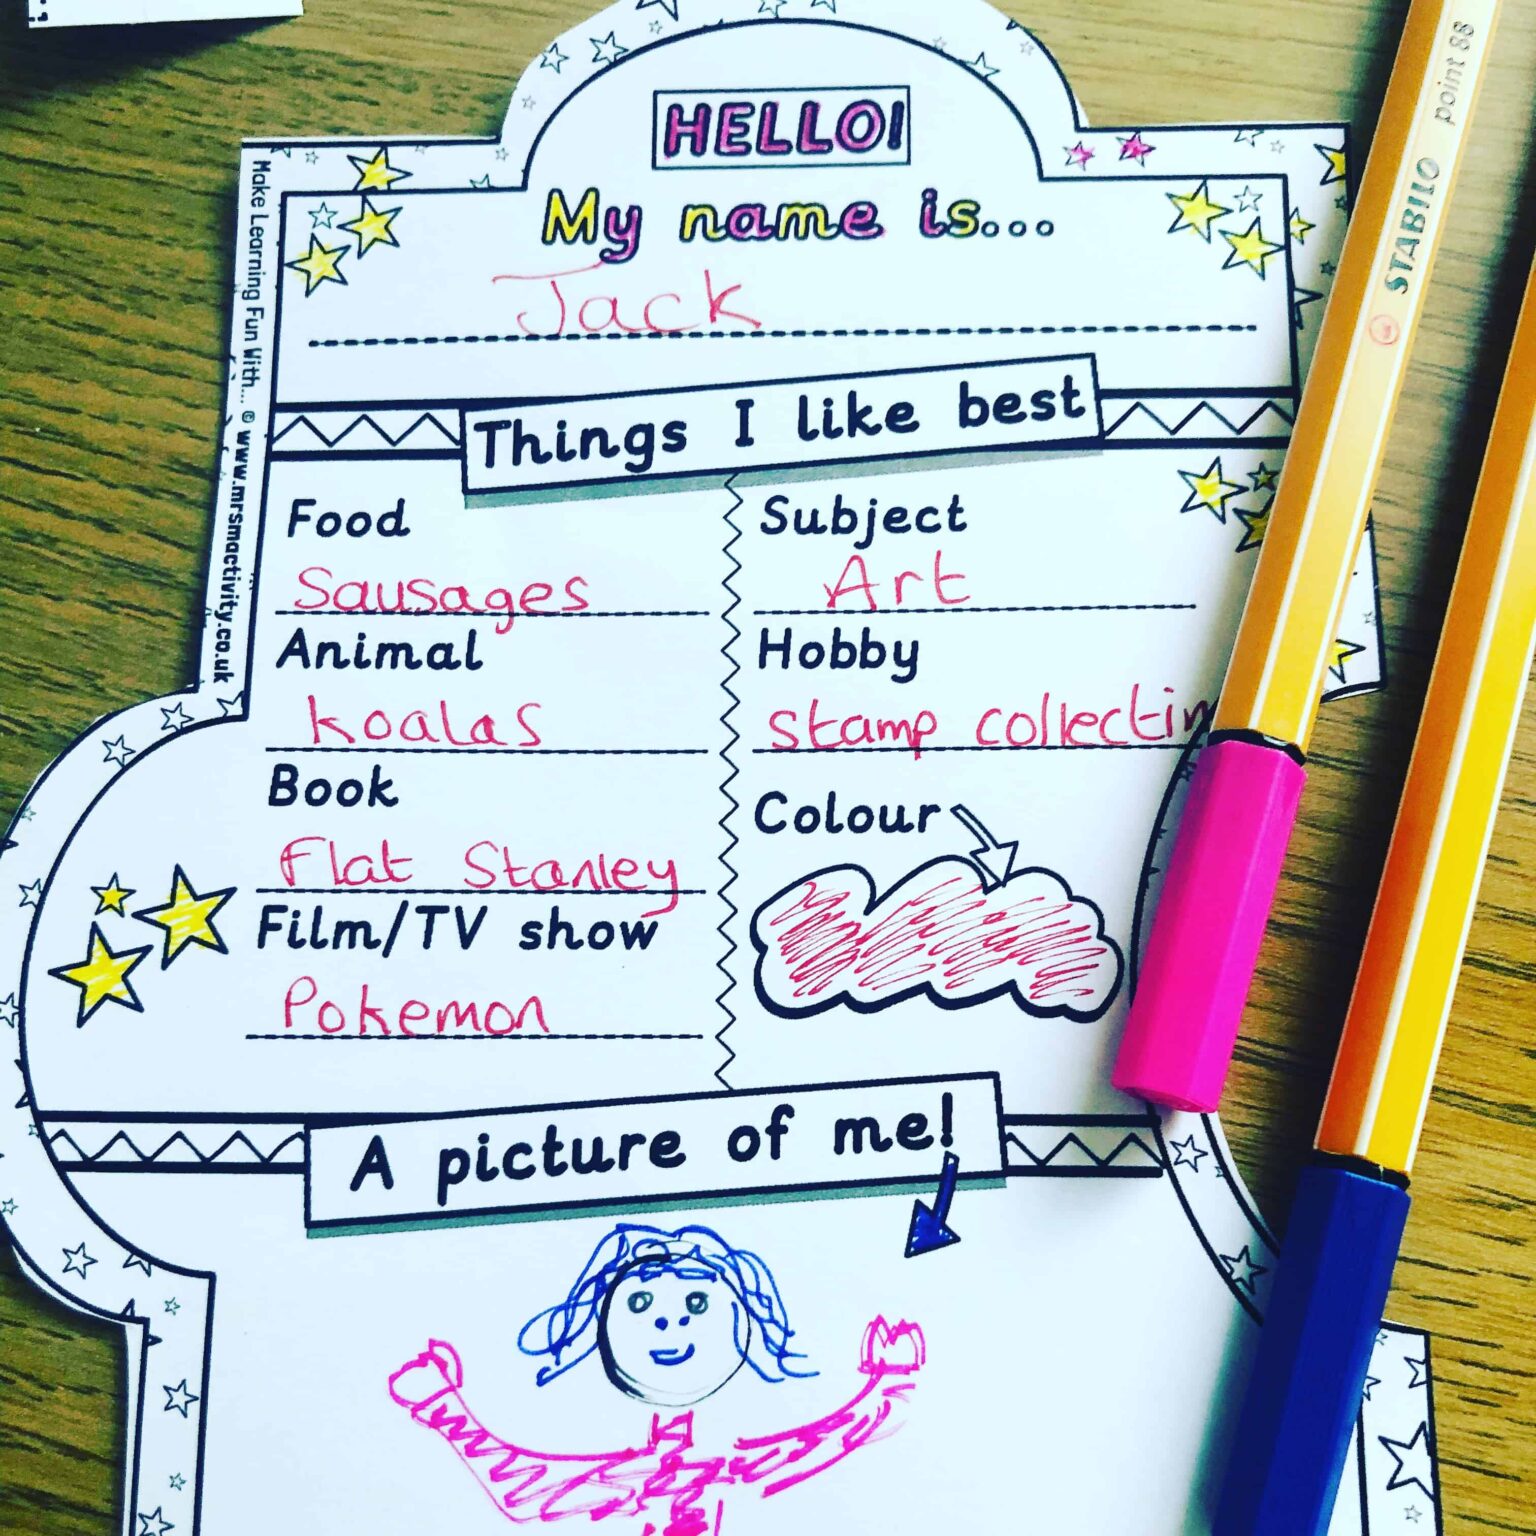 HELLO!
My name is...
Jack
Things I like best
Food
Sausages
Animal
Koalas
Book
Flat Stanley
Film/TV show
Pokemon
Subject
Art
Hobby
stamp collectin
Colour
A picture of me!
Make Learning Fun With.... © www.mrsmactivity.co.uk
STABILO point 88